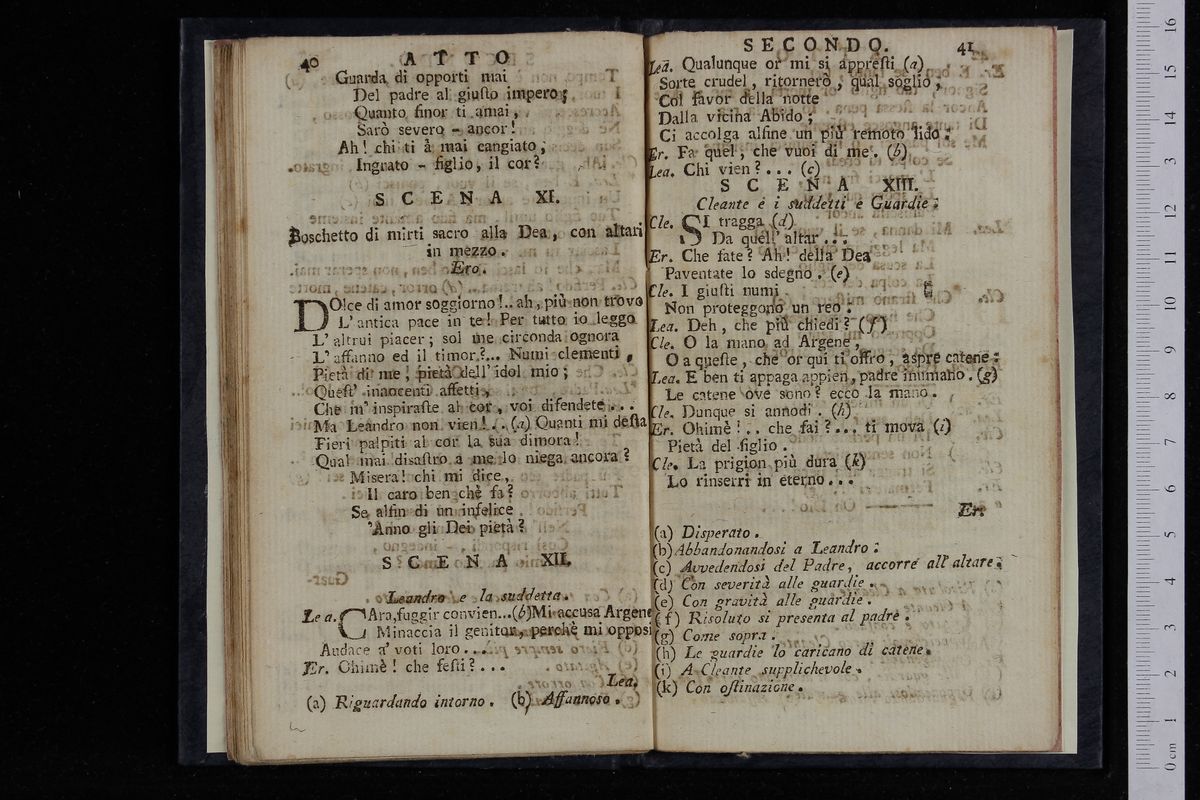 40 ATTO
Guarda di opporti mai
Del padre al giuſto impero;
Quanto finor ti amai,
Sarò ſevero - ancor!
Ah! chi ti à mai cangiato,
Ingrato - figlio, il cor?
SCENA XI.
Boschetto di mirti sacro alla Dea, con altari
in mezzo.
Ero.
DOlce di amor soggiorno!.. ah, più non trovo
L' antica pace in te! Per tutto io leggo
L' altrui piacer; sol me circonda ognora
L' affanno ed il timor?... Numi clementi,
Pietà di me; pietà dell' idol mio;
Queſt' innocenti affetti,
Che m' inſpiraſte al cor, voi difendete...
Ma Leandro non vien!... (a) Quanti mi deſta
Fieri palpiti al cor la sua dimora!
Qual mai disaſtro a me lo niega ancora?
Misera! chi mi dice,
Il caro ben chè fa?
Se alfin di un infelice
'Anno gli Dei pietà?
SCENA XII.
Leandro e la suddetta.
Lea. CAra, fuggir convien...(b) Mi accusa Argene
Minaccia il genitor, perchè mi opposi
Audace a' voti loro...
Er. Ohimè! che feſti?...
Lea.
(a) Riguardando intorno. (b) Affannoso.
SECONDO. 41
Lea. Qualunque or mi si appreſti (a)
Sorte crudel, ritornerò, qual soglio,
Col favor della notte
Dalla vicina Abido;
Ci accolga alfine un più remoto lido:
Er. Fa quel, che vuoi di me. (b)
Lea. Chi vien?... (c)
SCENA XIII.
Cleante e i suddetti e Guardie:
Cle. SI tragga (d)
Da quell' altar...
Er. Che fate? Ah! della Dea
Paventate lo sdegno. (e)
Cle. I giuſti numi
Non proteggono un reo.
Lea. Deh, che più chiedi? (f)
Cle. O la mano ad Argene,
O a queſte, che or qui ti offro, aspre catene:
Lea. E ben ti appaga appien, padre inumano. (g)
Le catene ove sono? ecco la mano.
Cle. Dunque si annodi. (h)
Er. Ohimè!.. che fai?... ti mova (i)
Pietà del figlio.
Cle. La prigion più dura (k)
Lo rinserri in eterno...
Er.
(a) Disperato.
(b) Abbandonandosi a Leandro:
(c) Avvedendosi del Padre, accorre all' altare;
(d) Con severità alle guardie.
(e) Con gravità alle guardie.
(f) Risoluto si presenta al padre.
(g) Come sopra.
(h) Le guardie lo caricano di catene.
(i) A Cleante supplichevole.
(k) Con oſtinazione.
0 cm 1 2 3 4 5 6 7 8 9 10 11 12 13 14 15 16